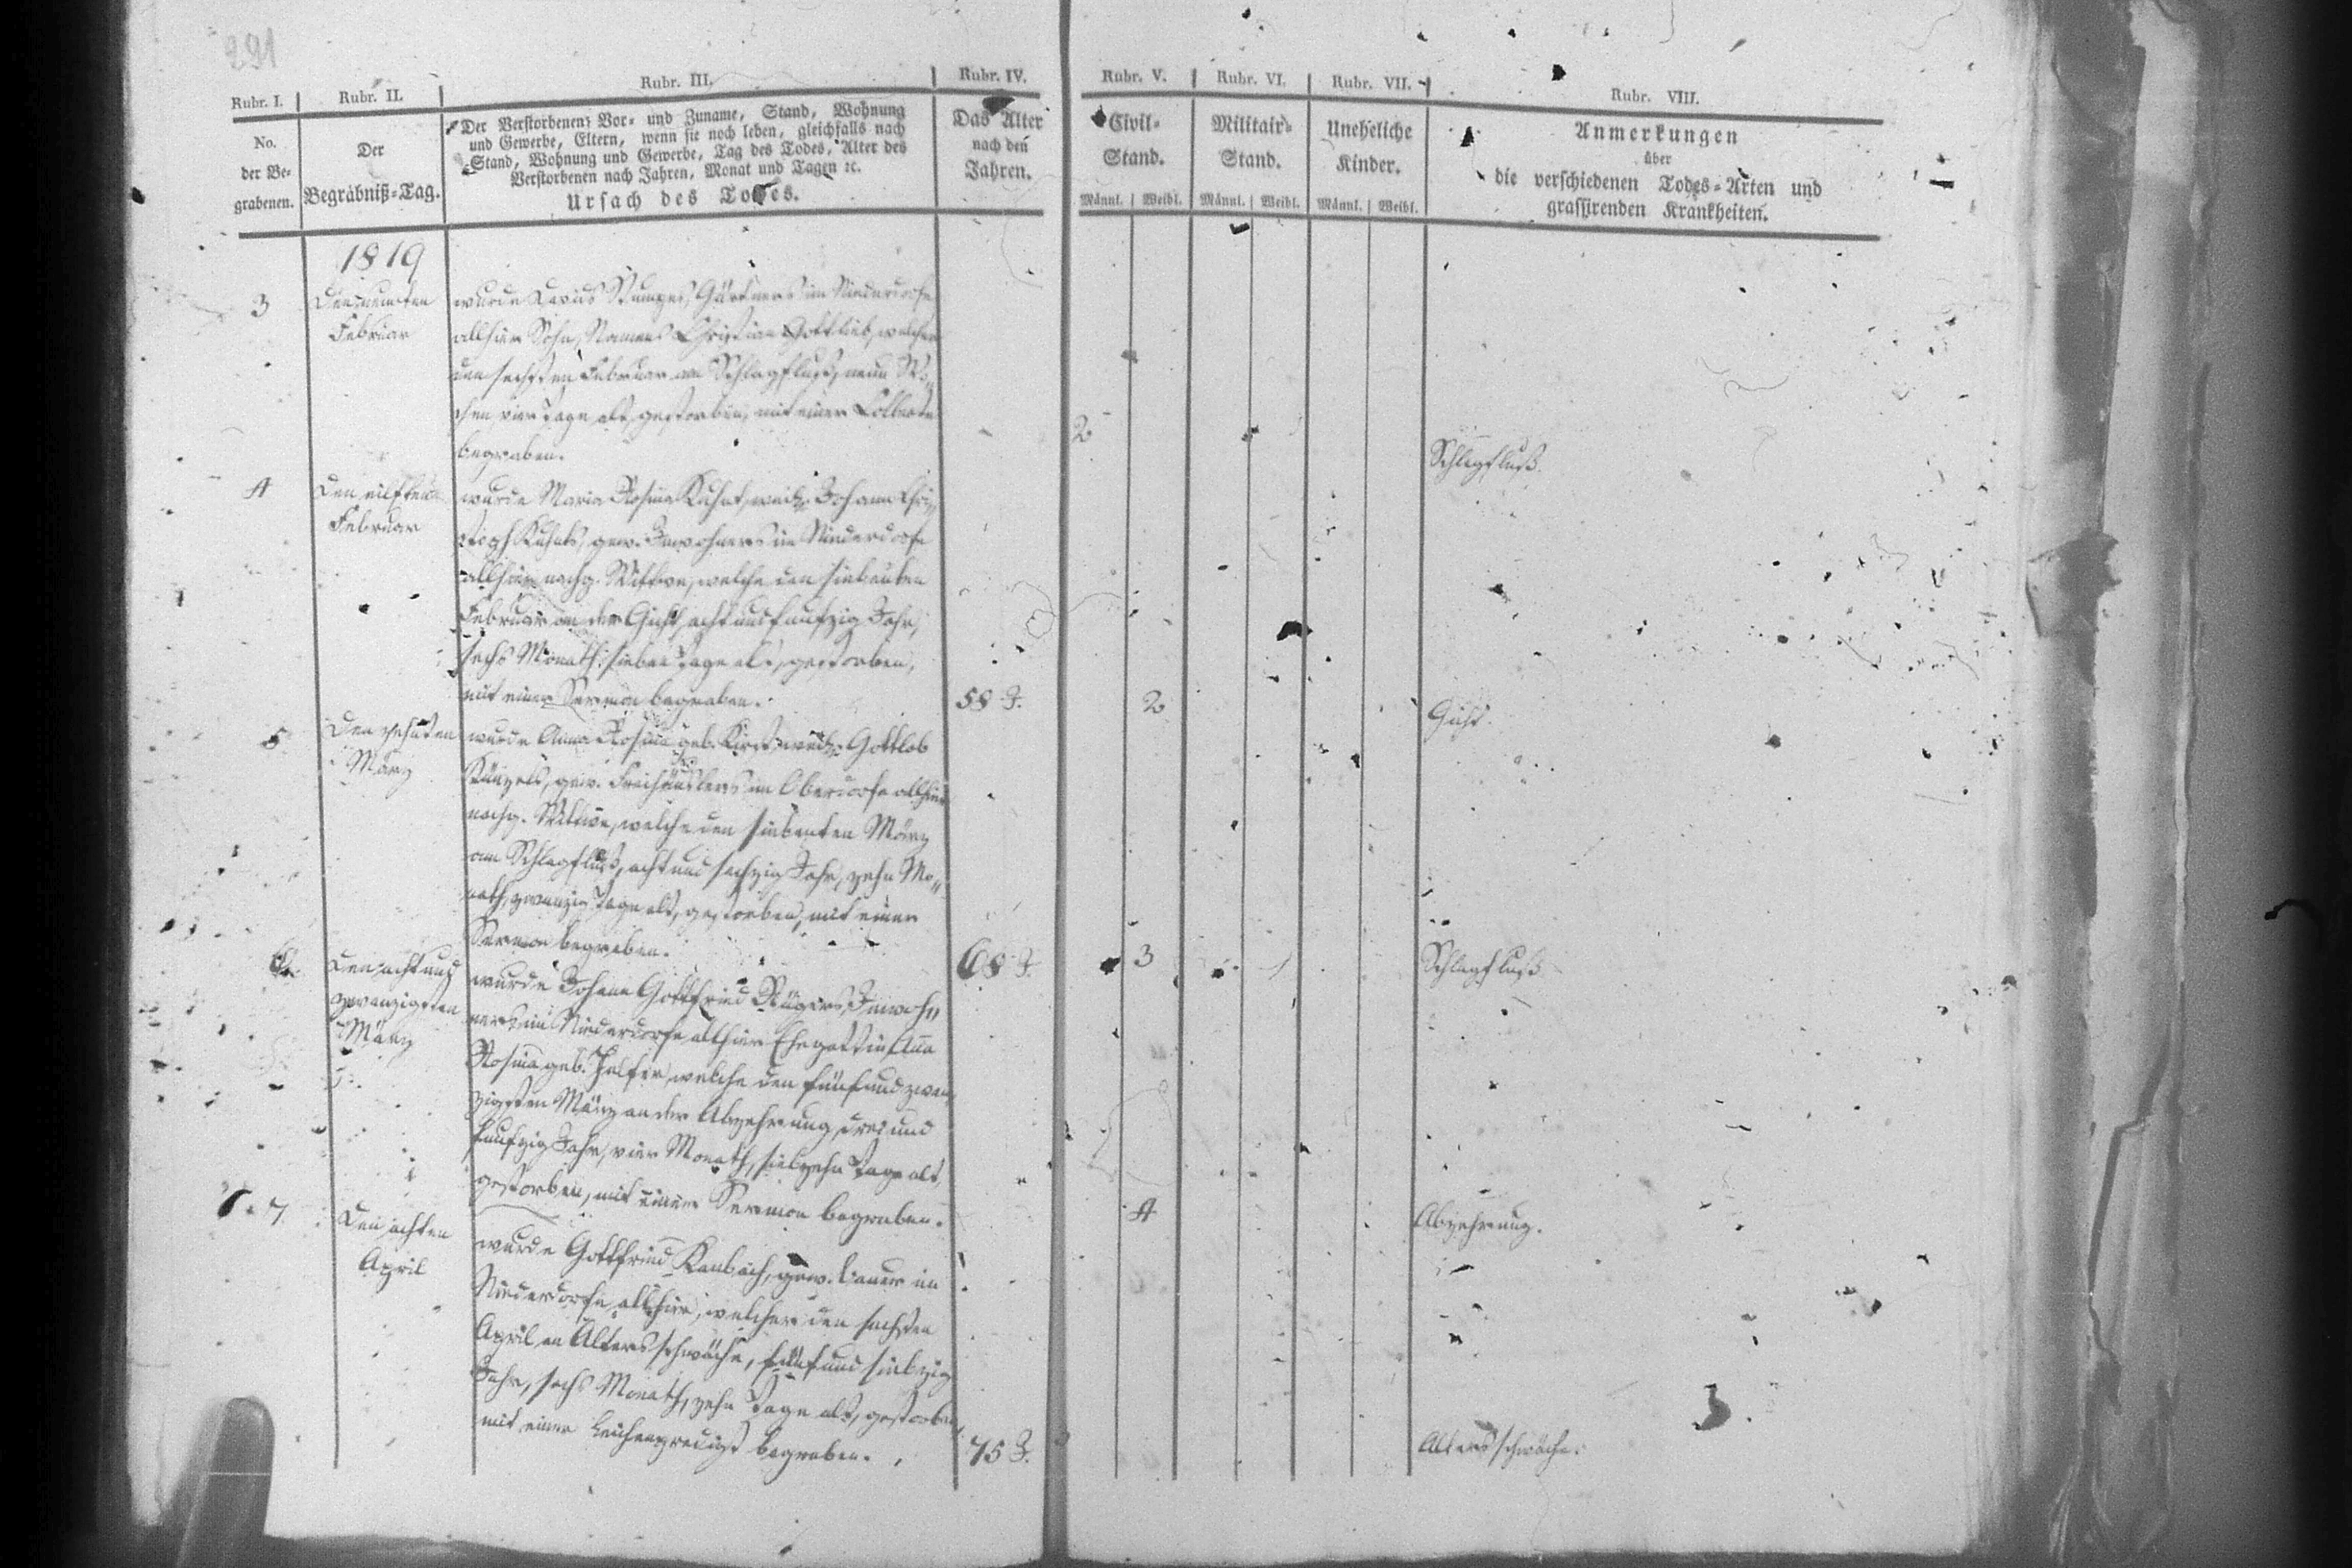 291
Rubr. I.
Rubr. II.
Rubr. III.
Rubr. IV.
Rubr. V.
Rubr. VI.
Rubr. VII.
Rubr. VIII.
No.
der Be-
grabenen.
Der
Begräbniß-Tag.
Der Verstorbenen Vor- und Zuname, Stand, Wohnung
und Gewerbe, Eltern, wenn sie noch leben, gleichfalls nach
Stand, Wohnung und Gewerbe, Tag des Todes, Alter des
Verstorbenen nach Jahren, Monat und Tagen ꝛc.
Ursach des Todes.
Das Alter
nach den
Jahren.
Civil-
Stand.
Männl. Weibl.
Militair-
Stand.
Männl. Weibl.
Uneheliche
Kinder.
Männl. Weibl.
Anmerkungen
über
die verschiedenen Todes-Arten und
grassirenden Krankheiten.
1819
3
Den neunten
Februar
wurde Davids Gärtners im Niederdorfe
allhier Sohn, Namens Christian Gottlieb, welcher
den sechsten Februar am Schlagfluß, neun Wo-
chen vier Tage alt, gestorben, mit einer Collecte
begraben.
2
Schlagfluß.
4
Den eilften
Februar
wurde Maria Rosina Kuhnt, weil. Johann Chri-
stoph Kuhnts, gew. Inwohners im Niederdorfe
allhier nachg. Wittwe, welche den siebenten
Februar an der Gicht, acht und funfzig Jahr,
sechs Monath, sieben Tage alt, gestorben,
mit einer Sermon begraben.
58 J.
2
Gicht.
5
Den zehnten
März
wurde Anna Rosina geb. weil. Gottlob
gew. Freihäuslers im Oberdorfe allhier
nachg. Wittwe, welche den siebenten März
am Schlagfluß, acht und sechzig Jahr, zehn Mo-
nath, zwanzig Tage alt, gestorben, mit einer
Sermon begraben.
68 J.
3
Schlagfluß
6.
Den acht und
zwanzigsten
März
wurde Johann Gottfried Inwoh-
ners im Niederdorfe allhier Ehegattin Anna
Rosina geb. welche den fünf und zwan-
zigsten März an der Abzehrung, drei und
funfzig Jahr, vier Monath, siebzehn Tage alt,
gestorben, mit einer Sermon begraben.
4
Abzehrung.
7.
Den achten
April
wurde Gottfried Kambach, gew. Bauer im
Niederdorfe allhier, welcher den sechsten
April an Altersschwäche, fünf und siebzig
Jahr, sechs Monath, zehn Tage alt, gestorben,
mit einer Leichenpredigt begraben.
75 J.
3
Altersschwäche.